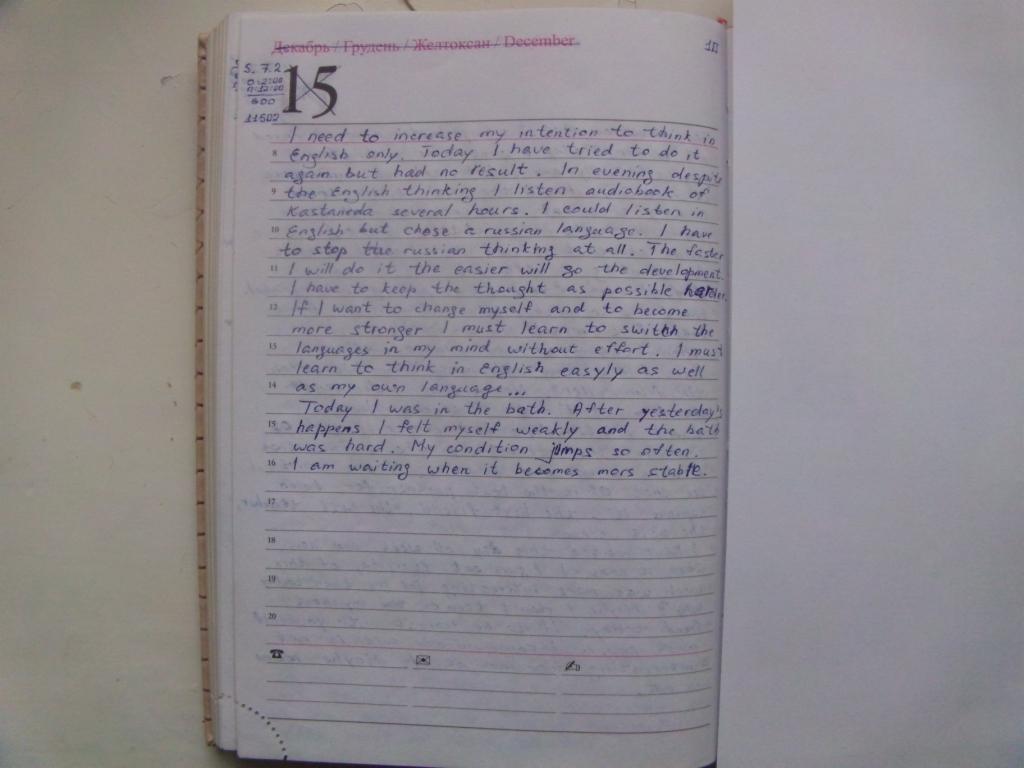 Декабрь / Грудень / Желтоксан / December
S. 7.2
15
600
11502
I need to increase my intention to think in
8 English only. Today I have tried to do it
again but had no result. In evening despite
9 the English thinking I listen audiobook of
Kastaneda several hours. I could listen in
10 English but chose a russian language. I have
to stop the russian thinking at all. The faster
11 I will do it the easier will go the development.
I have to keep the thought as possible harder.
12 If I want to change myself and to become
more stronger I must learn to switch the
13 languages in my mind without effort. I must
learn to think in English easyly as well
14 as my own language...
Today I was in the bath. After yesterday's
15 happens I felt myself weakly and the bath
was hard. My condition jumps so often.
16 I am waiting when it becomes mors stable.
17
18
19
20